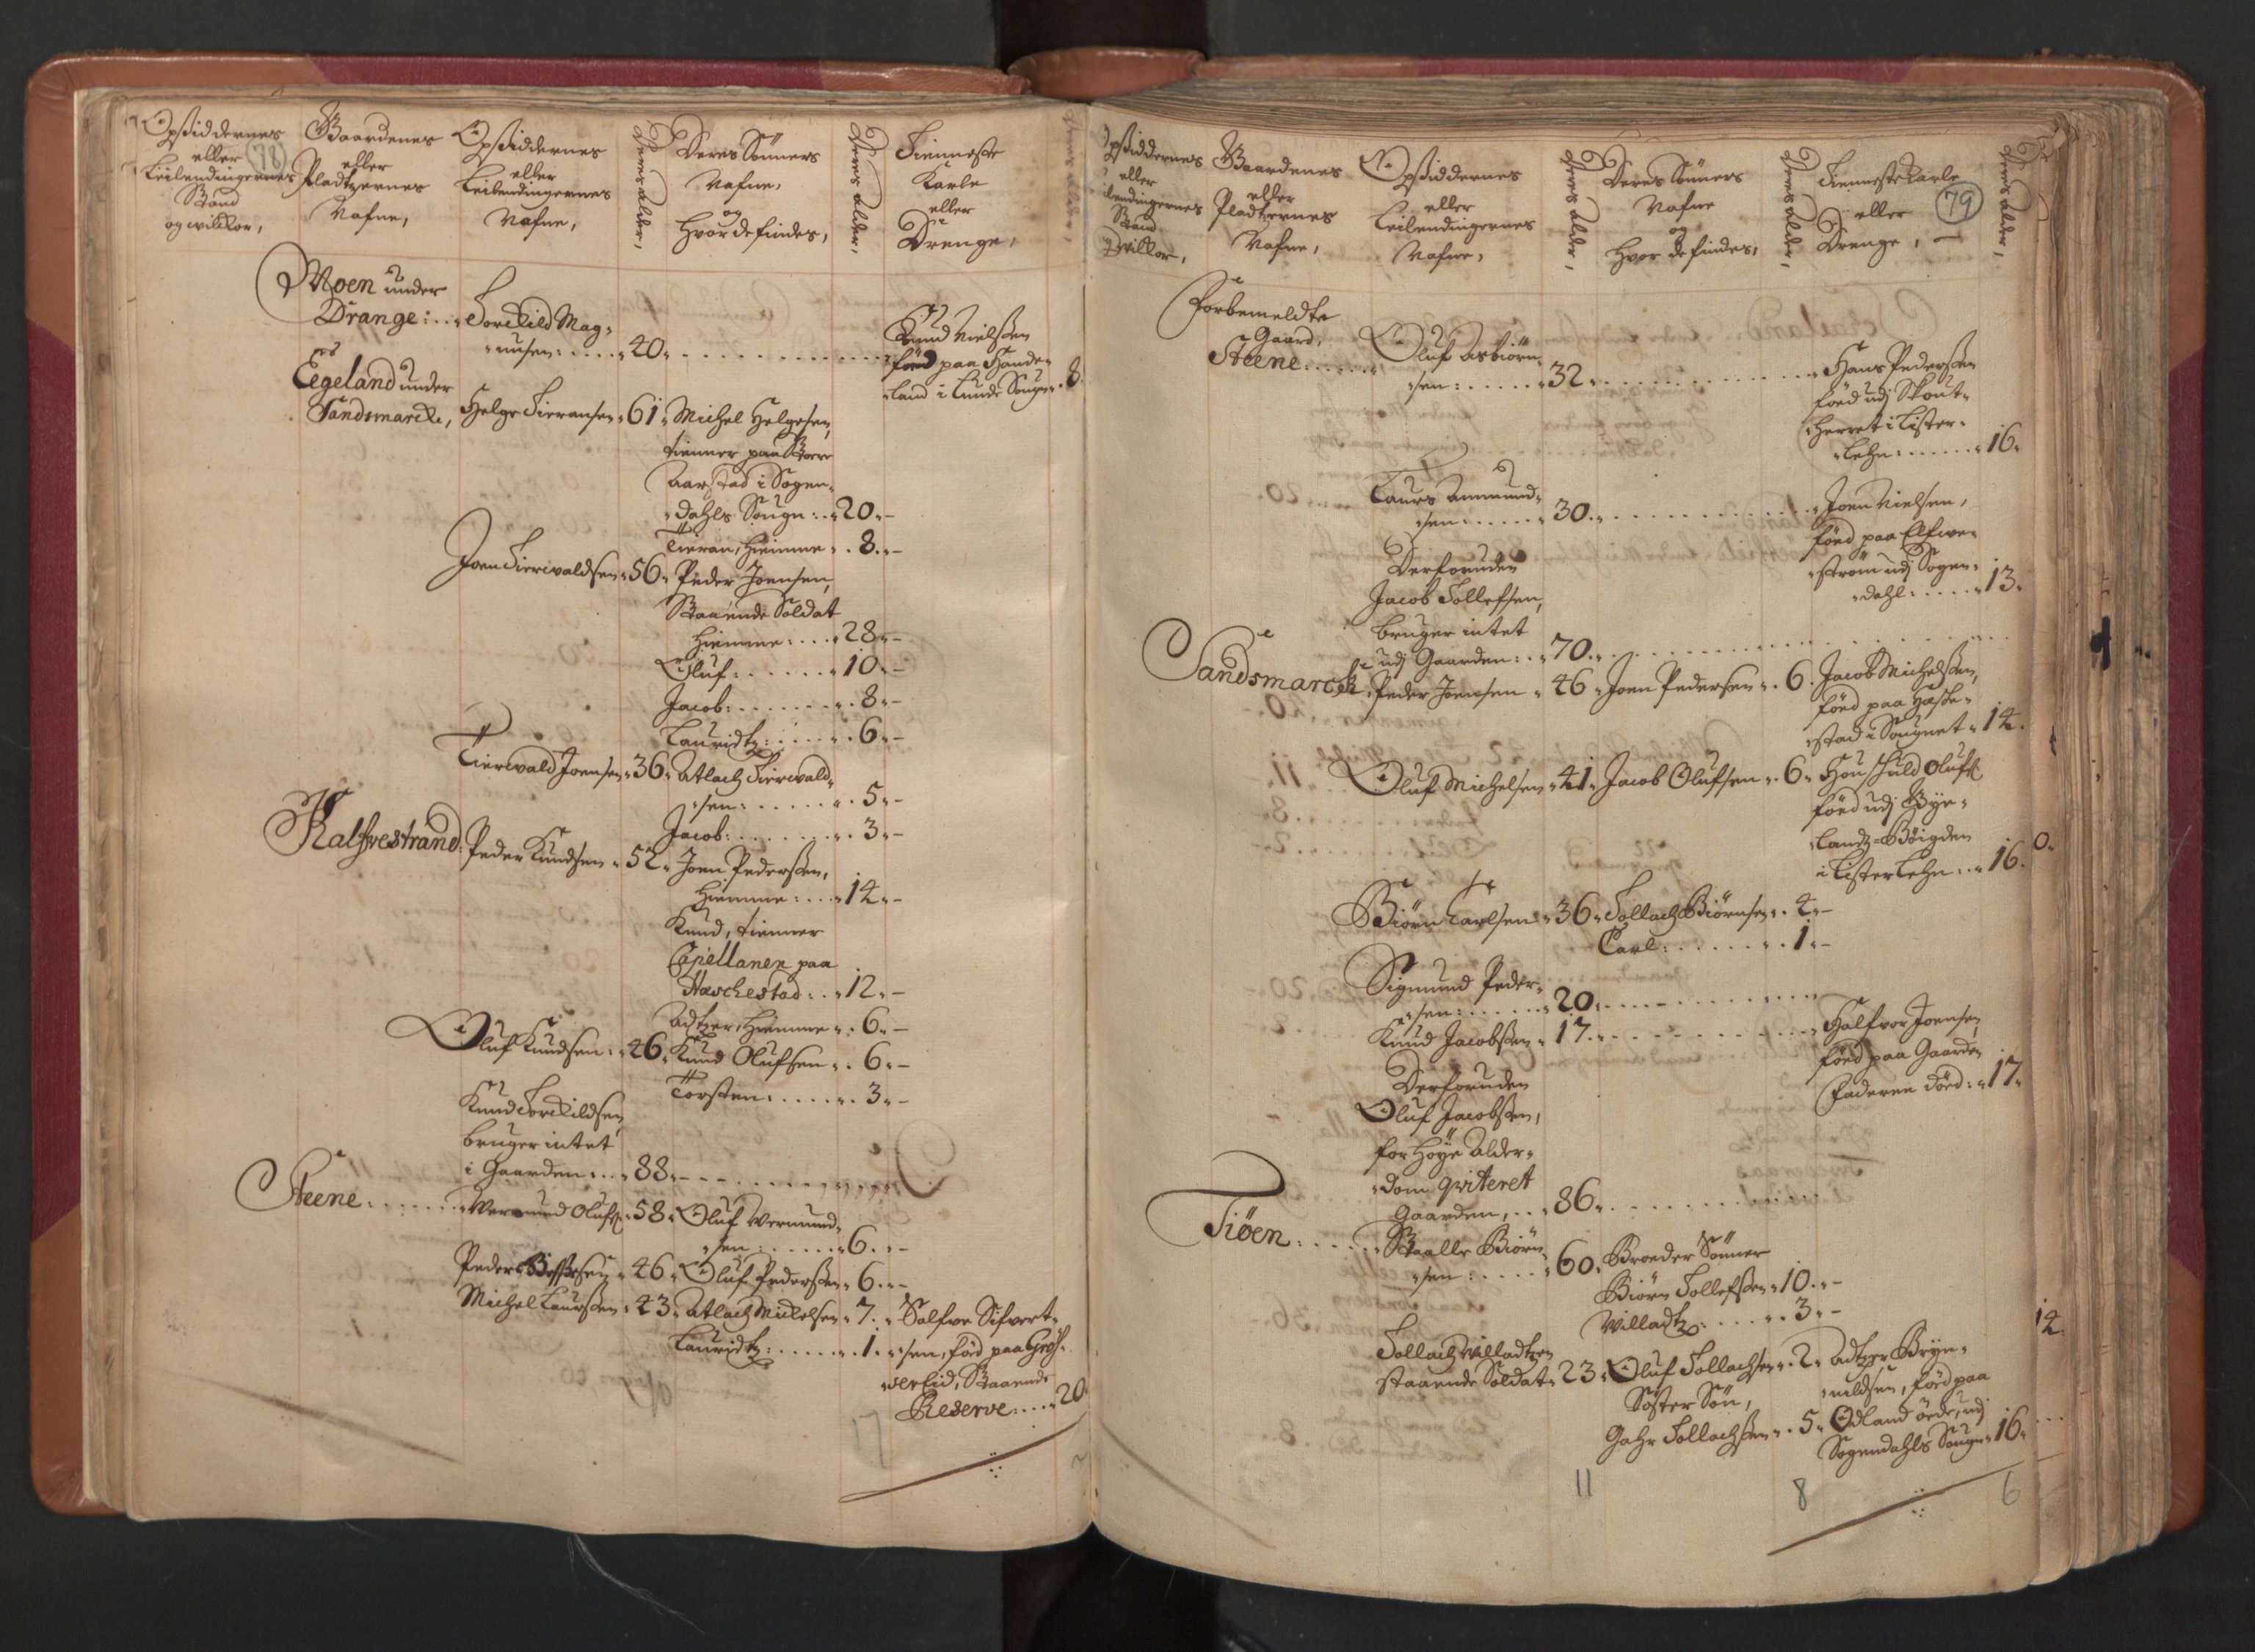 Opsiddernes
eller
Leilendingernes
Stand
og wilkor,
78
Gaardenes
eller
Pladtzernes
Nafne,
Opsiddernes
eller
Leilendingernes
Nafne,
Deres alder,
Deres Sönners
Nafne,
og
Hvor de findes,
Deres alder,
Tienneste
Karle
eller
Drenge,
Moen under
Drange: Torckild Mag-
nusen: 40.
Knud Nielssen
föed paa Hande-
land i Lunde Sougn. 8.
Eegeland under
Sandsmarck, Helge Tieransen 61. Michel Helgesen,
tienner paa Store
Aarstad i Sogen-
dahls Sougn: 20.
Tieran, hiemme 8.
Joen Tierwaldsen 56. Peder Joensen,
Staaende Soldat
hiemme: 28.
Oluf: 10.
Jacob: 8.
Lauridtz: 6.
Tierwald Joensen 36. Atlach Tierwald-
sen: 5.
Jacob: 3.
Kalfvestrand: Peder Knudsen 52. Joen Pederssen,
hiemme: 14.
Knud, tienner
Capellanen paa
Hæschestad: 12.
Adtzer, hiemme 6.
Oluf Knudsen: 46. Knud Olufsen 6.
Torsten: 3.
Knud Torckildsen,
bruger intet
i Gaarden: 88.
Steene: Wermund Olufs: 58. Oluf Wermund-
sen: 6.
Peder 46. Oluf Pederssen 6.
Michel Laurssen 43. Atlach Mickelsen 7. Salfve Sifvert-
Lauridtz: 1. sen, föd paa Grös-
Eid, Staaende
Reserve: 20.
Opsiddernes
eller
Leilendingernes
Stand
og wilkor,
Gaardenes
eller
Pladtzernes
Nafne,
Opsiddernes
eller
Leilendingernes
Nafne,
Deres alder,
Deres Sönners
Nafne
og
Hvor de findes,
Deres alder,
Tienneste Karle
eller
Drenge,
79
Deres alder,
Forbemeldte
Gaard,
Steene Oluf Asbiörn-
sen: 32. Hans Pederssen
föed udj Skout-
herret i Lister-
Lehn: 16.
Laurs Ammund-
sen: 30. Joen Nielsen,
föed paa Elfwe-
ström udj Sogen-
dahl: 13.
Derforuden
Jacob Tollefsen,
bruger intet
udj Gaarden: 70.
Sandsmarck: Peder Joensen 46. Joen Pedersen 6. Jacob Michelssen,
föed paa Hæske-
stad i Sougnet 14.
Oluf Michelsen 41. Jacob Olufsen 6. Houschuld Olufs:
föed udj Bye-
landz Böigden
i Lister Lehn: 16.
Biörn Carlsen 36. Tollach Biörnsen 4.
Carl: 1.
Sigmund Peder-
sen: 20.
Knud Jacobssen 17. Halfvor Joensen
föed paa Gaarden
Faderen död: 17.
Derforuden
Oluf Jacobssen,
for höye Alder-
dom qviteret
Gaarden, 86.
Tiöen: Staalle Biörn-
sen: 60. Broeder Sönner
Biörn Tollefssen 10.
Willadtz: 3.
Tollach Willadtzen
staaende Soldat 23. Oluf Tollachsen 2. Adtzer Bryn-
Söster Sön, nildsen, föed paa
Gahr Tollachssen 5. Odland öede, udj
Sogendahls Sougn 16.
11
8
6
0.
14.